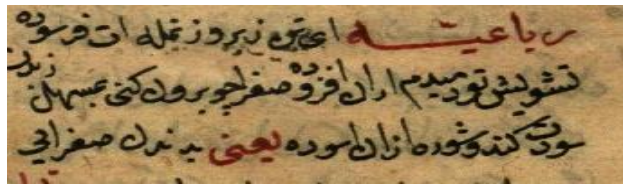 رباعیـــه ای تن زیر و زتیله ات فرسوده
تشویش تو دمیدم ازان افزوده صفرا چو برون کنی بمسهل ز بدن
سودت کند و شوی ازان اسوده یعنی بدن صفرایی